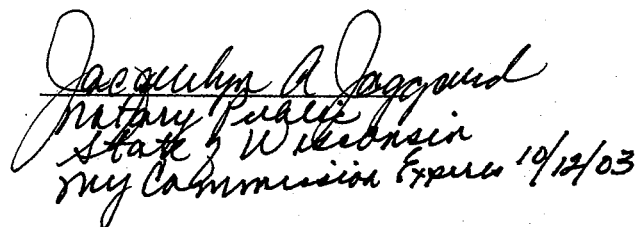 Jacquelyn A Jaggard
Notary Public
State of Wisconsin
My Commission Expires 10/12/03